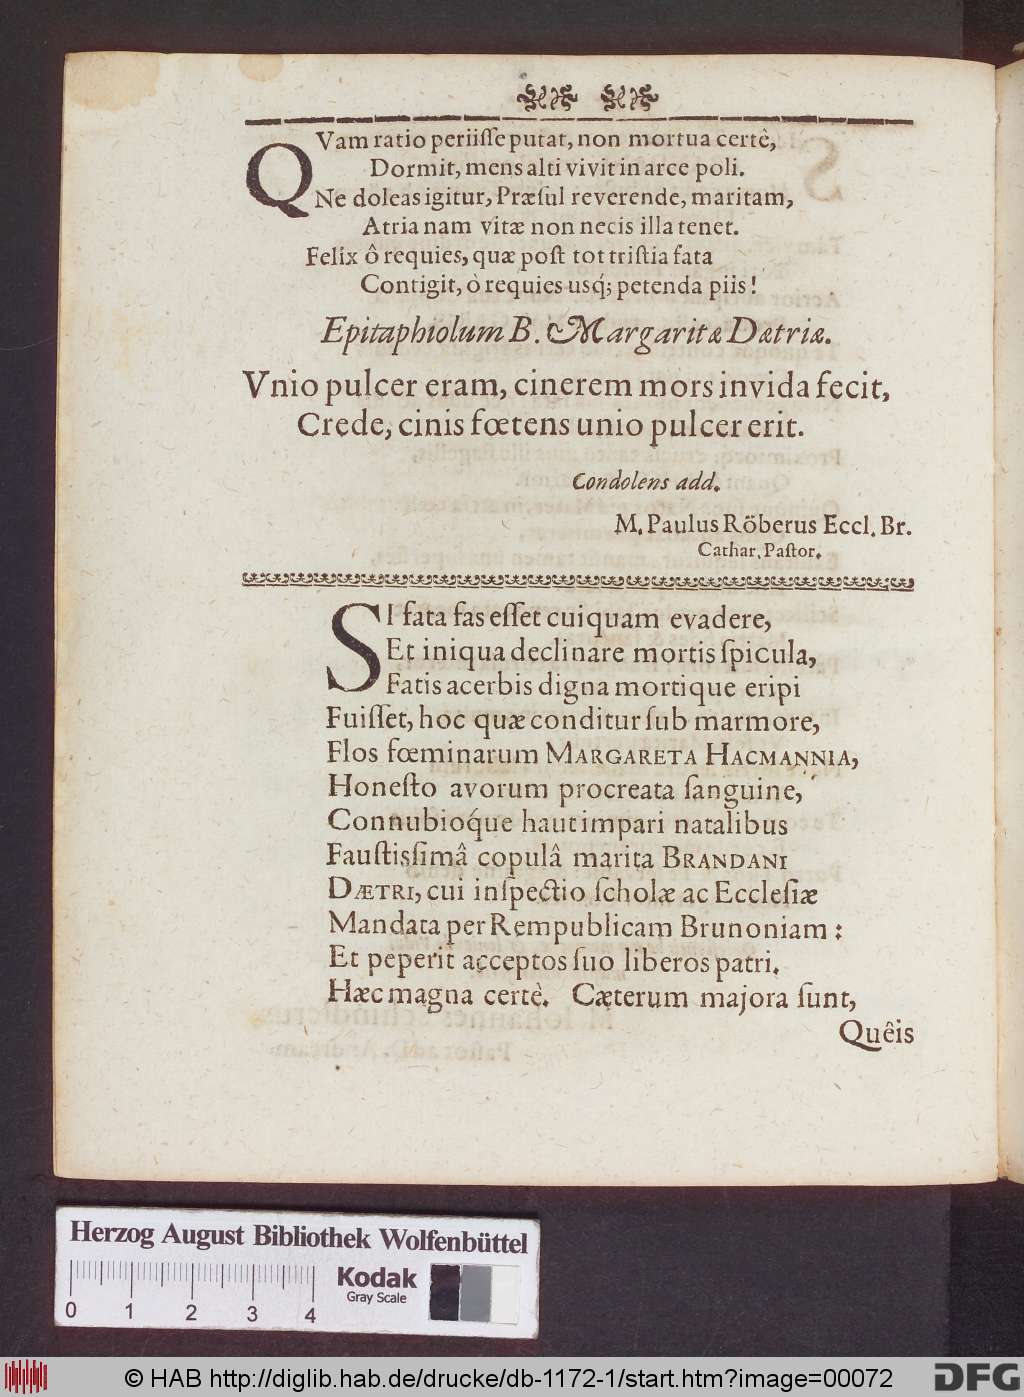 QVam ratio periiſſe putat, non mortua certè,
Dormit, mens alti vivit in arce poli.
Ne doleas igitur, Præſul reverende, maritam,
Atria nam vitæ non necis illa tenet.
Felix ô requies, quæ poſt tot triſtia fata
Contigit, ò requies usq́; petenda piis!
Epitaphiolum B. Margaritæ Dætriæ.
Vnio pulcer eram, cinerem mors invida fecit,
Crede, cinis fœtens unio pulcer erit.
Condolens add.
M. Paulus Röberus Eccl. Br.
Cathar. Paſtor.
SI fata fas eſſet cuiquam evadere,
Et iniqua declinare mortis ſpicula,
Fatis acerbis digna mortique eripi
Fuiſſet, hoc quæ conditur ſub marmore,
Flos fœminarum MARGARETA HACMANNIA,
Honeſto avorum procreata ſanguine,
Connubioq́ue haut impari natalibus
Fauſtiſsimâ copulâ marita BRANDANI
DÆTRI, cui inſpectio ſcholæ ac Eccleſiæ
Mandata per Rempublicam Brunoniam:
Et peperit acceptos ſuo liberos patri.
Hæc magna certè. Cæterum majora ſunt,
Quêis
Herzog August Bibliothek Wolfenbüttel
Kodak
Gray Scale
0 1 2 3 4
© HAB http://diglib.hab.de/drucke/db-1172-1/start.htm?image=00072
DFG